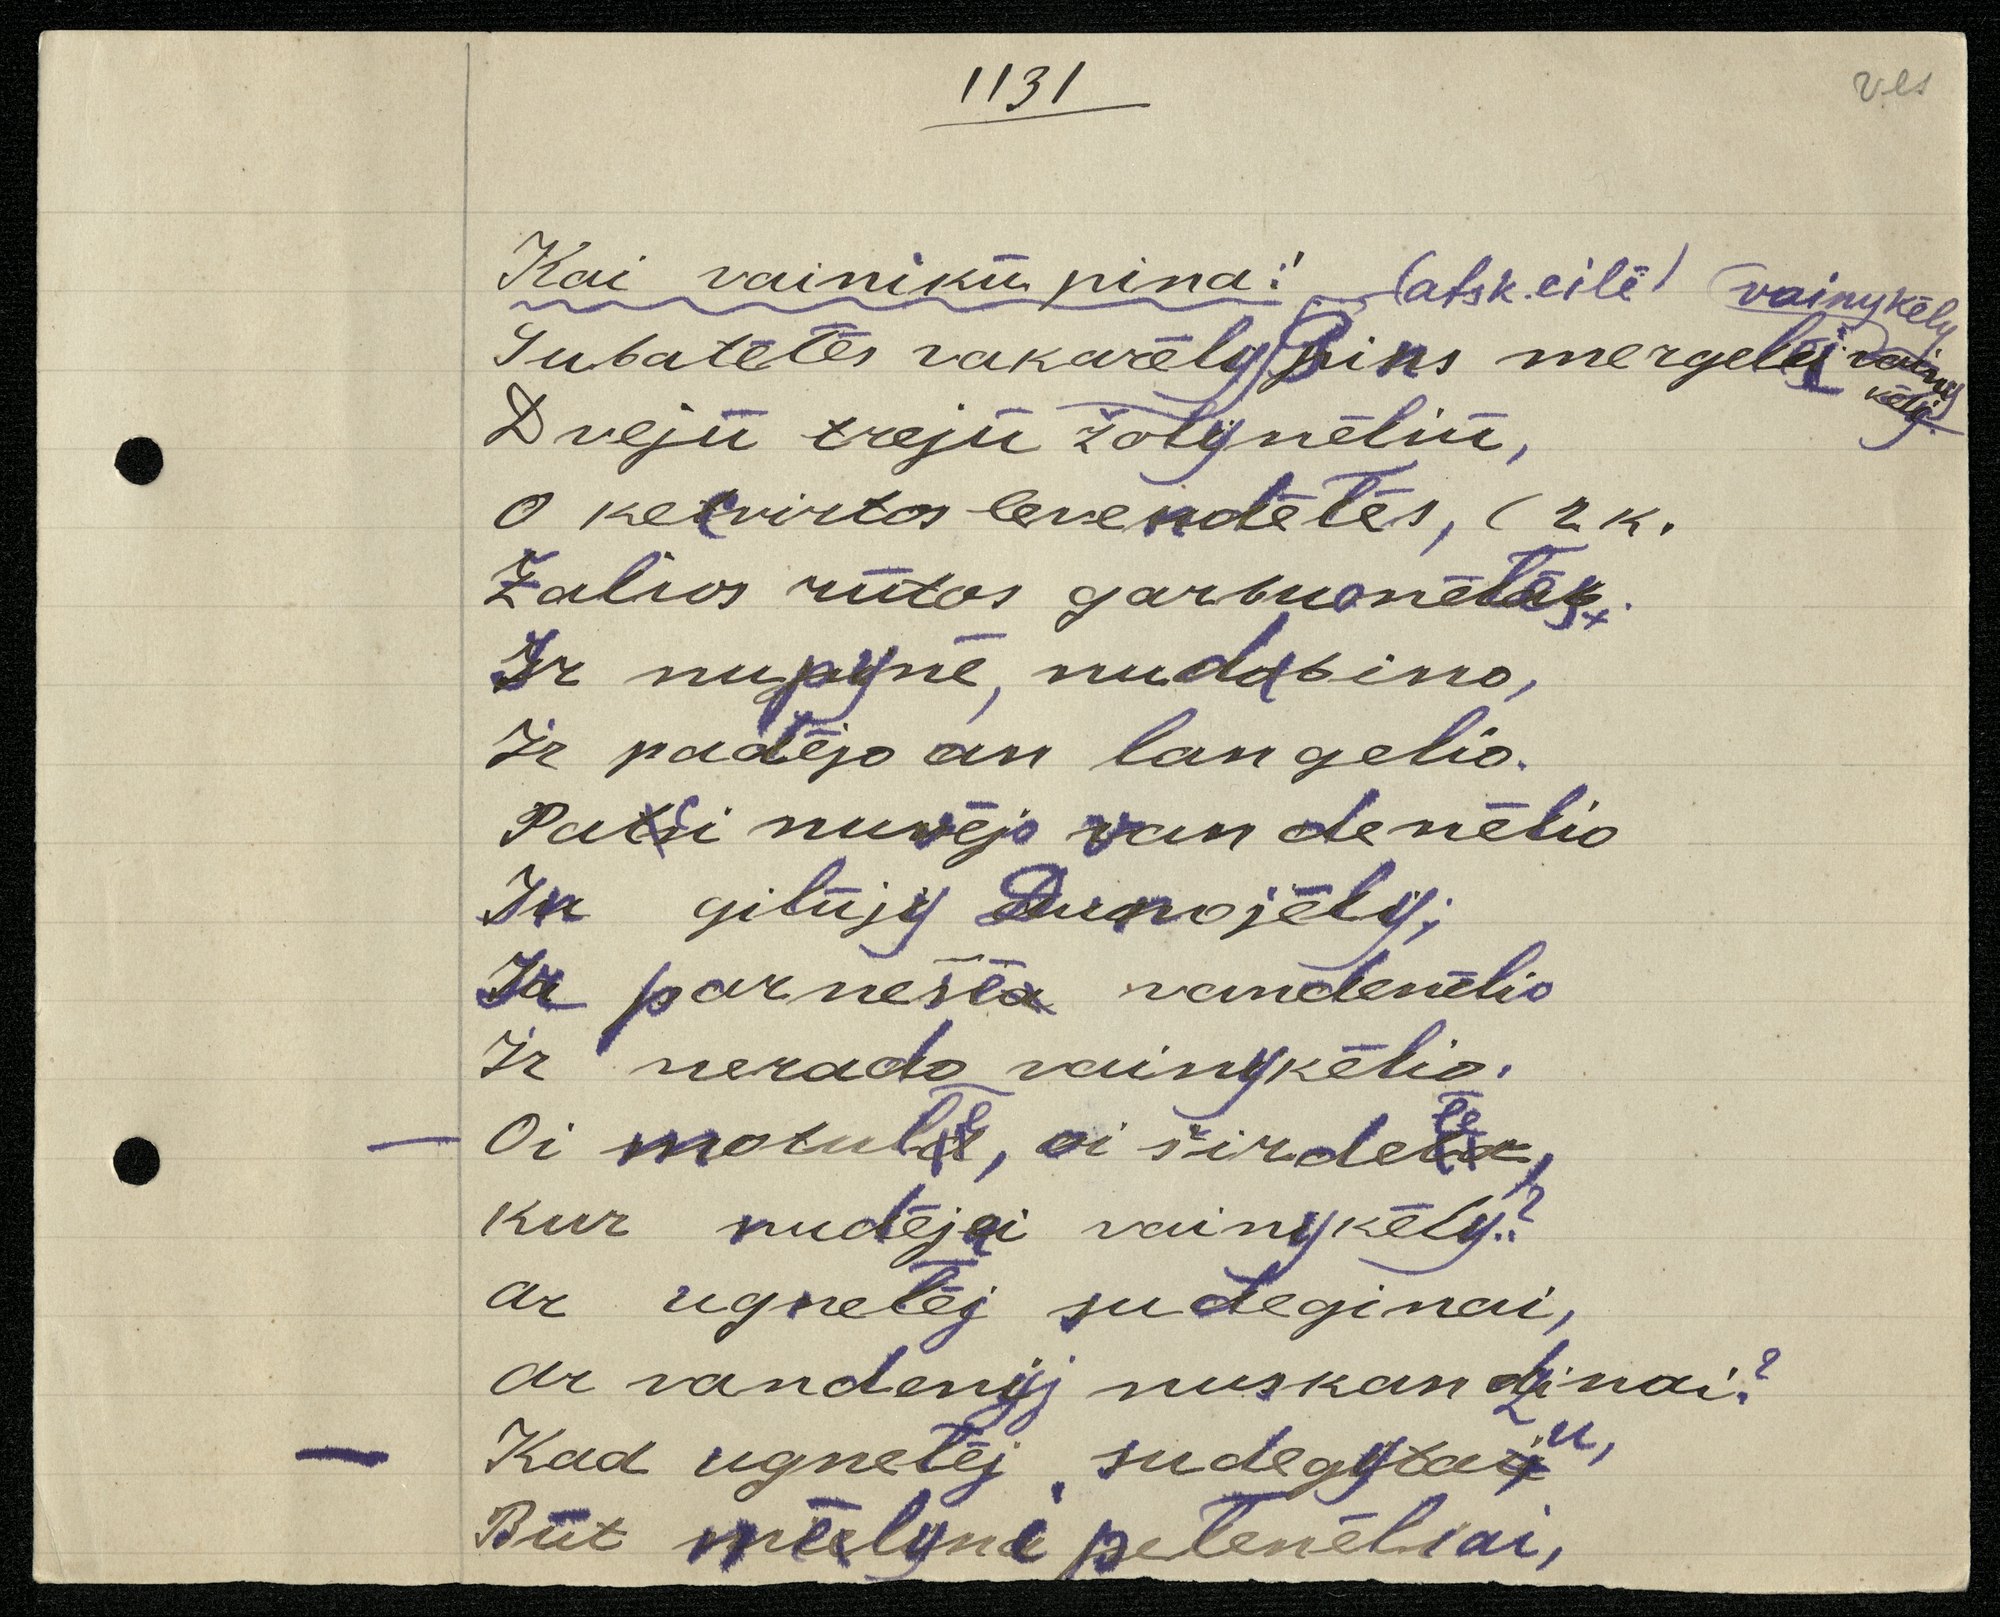 1131
ves
Kai vainikū pina: (atsk. eilė) vainykėly
Subatėlės vakarėly Pins mergelėj vainykėly.
Dvejū trejū žolynėliū,
O ketvirtos levendėlės, (2 k.
Žalios rūtos garbuonėlės.
Ir nupynė, nudabino,
Ir padėjo an langelio.
Pati nuvėjo vandenėlio
In gilūjy Dunojėly;
Ir parnešė vandenėlio
Ir nerado vainykėlio.
— Oi motule, oi širdele,
kur nudėjai vainykėly?
ar ugnelėj sudeginai,
ar vandenyj nuskandinai?
— Kad ugnelėj sudegytau,
Būt mėlyni pelenėliai,